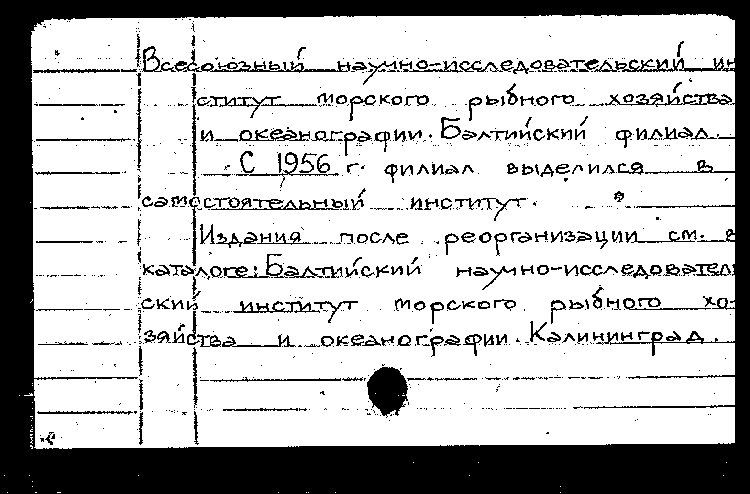 Всесоюзный научно-исследовательский ин
ститут морского рыбного хозяйства
и океанографии. Балтийский филиал.
С 1956 г. филиал выделился в
самостоятельный институт.
Издания после реорганизации см. в
каталоге: Балтийский научно-исследователь
ский институт морского рыбного хо-
зяйства и океанографии. Калининград.